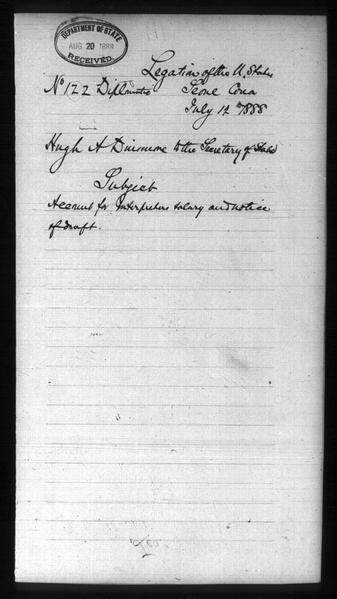 DEPARTMENT OF STATE
AUG 20 1888
RECEIVED.
Legation of the U. States
No 122 Diplmatic Seoul Corea
July 12 1888
Hugh A Dinsmore to the Secretary of State
Subject
Account for Interpreters salary and notice
of draft.